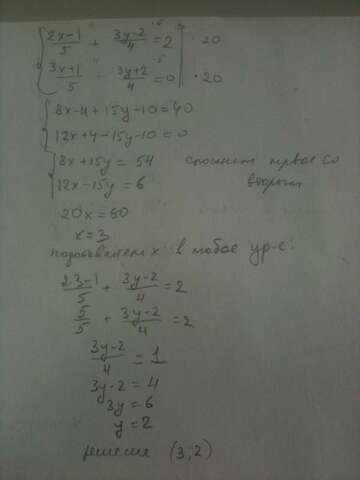 { (2x-1)/5 + (3y-2)/4 = 2 | · 20
(3x+1)/5 - (3y+2)/4 = 0 | · 20
{ 8x-4+15y-10=40
12x+4-15y-10=0
{ 8x+15y = 54 сложим первое со
12x-15y = 6 вторым
20x=60
x=3
подставляем x в любое ур-е:
(2·3-1)/5 + (3y-2)/4 = 2
5/5 + (3y-2)/4 = 2
(3y-2)/4 = 1
3y-2 = 4
3y=6
y=2
решение (3;2)